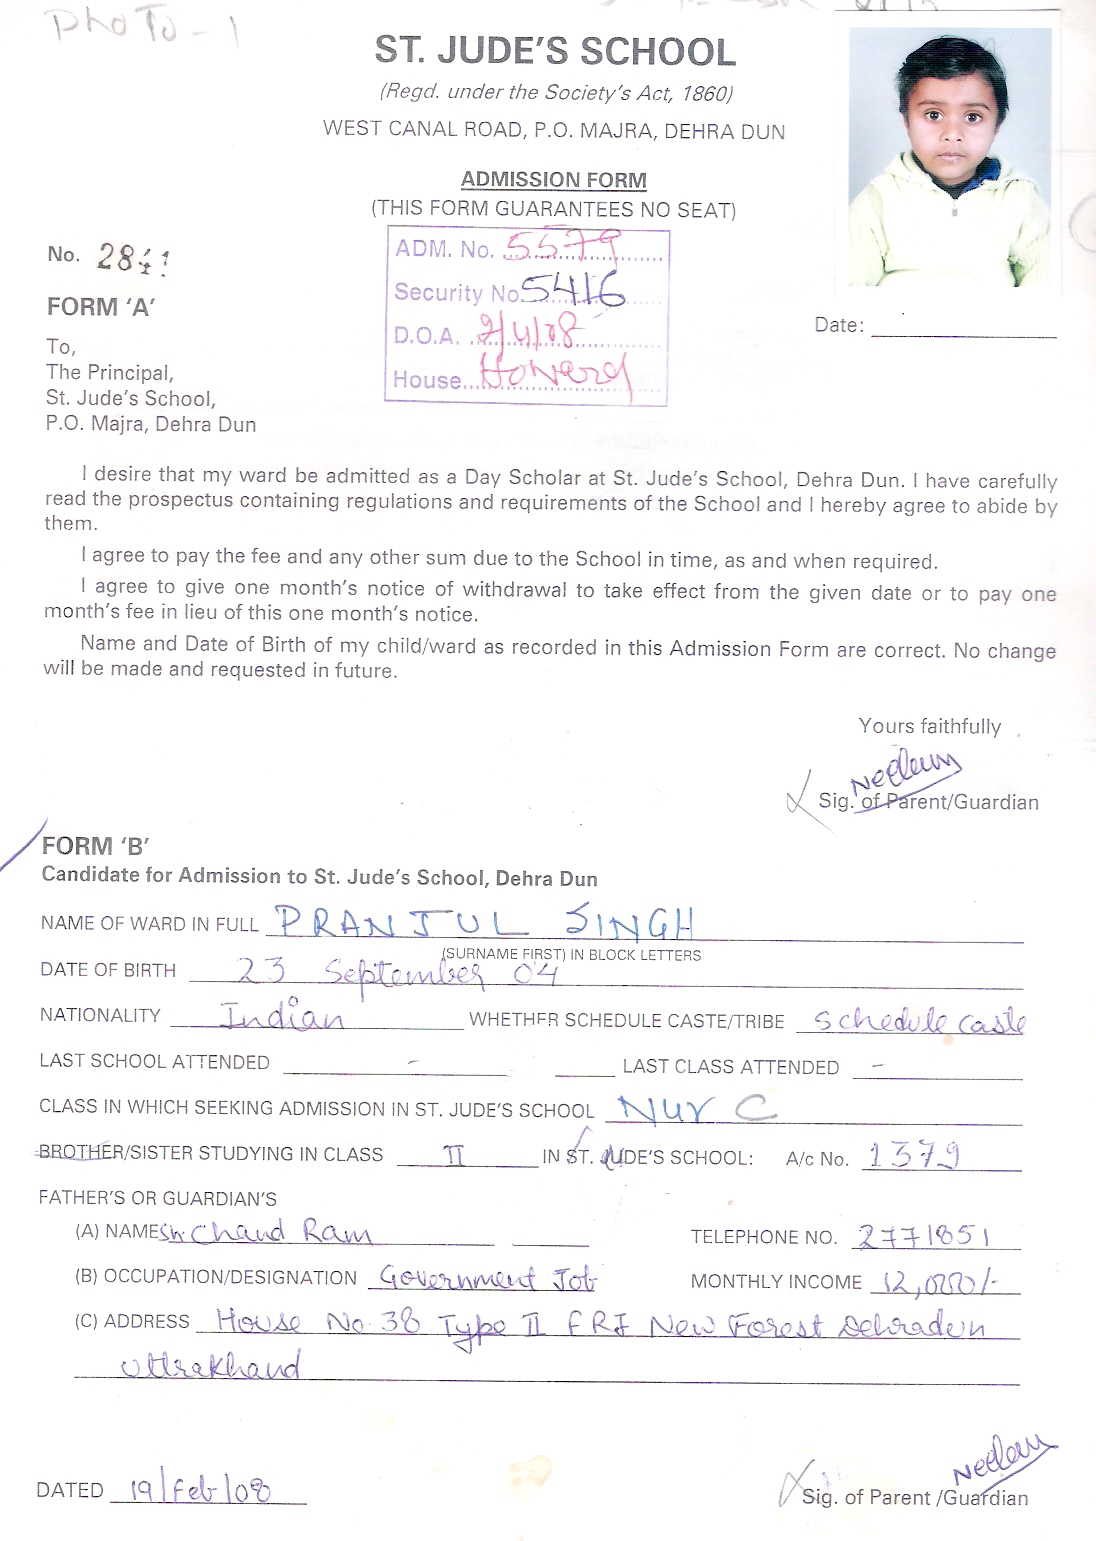 PHOTO - 1
ST. JUDE'S SCHOOL
(Regd. under the Society's Act, 1860)
WEST CANAL ROAD, P.O. MAJRA, DEHRA DUN
ADMISSION FORM
(THIS FORM GUARANTEES NO SEAT)
No. 2841
ADM. No. 5579
Security No. 5416
D.O.A. 2/4/08
House Howard
FORM 'A'
Date:
To,
The Principal,
St. Jude's School,
P.O. Majra, Dehra Dun
I desire that my ward be admitted as a Day Scholar at St. Jude's School, Dehra Dun. I have carefully
read the prospectus containing regulations and requirements of the School and I hereby agree to abide by
them.
I agree to pay the fee and any other sum due to the School in time, as and when required.
I agree to give one month's notice of withdrawal to take effect from the given date or to pay one
month's fee in lieu of this one month's notice.
Name and Date of Birth of my child/ward as recorded in this Admission Form are correct. No change
will be made and requested in future.
Yours faithfully
Neelam
Sig. of Parent/Guardian
FORM 'B'
Candidate for Admission to St. Jude's School, Dehra Dun
NAME OF WARD IN FULL PRANJUL SINGH
(SURNAME FIRST) IN BLOCK LETTERS
DATE OF BIRTH 23 September 04
NATIONALITY Indian WHETHER SCHEDULE CASTE/TRIBE Schedule caste
LAST SCHOOL ATTENDED - LAST CLASS ATTENDED -
CLASS IN WHICH SEEKING ADMISSION IN ST. JUDE'S SCHOOL Nur C
BROTHER/SISTER STUDYING IN CLASS II IN ST. JUDE'S SCHOOL: A/c No. 1379
FATHER'S OR GUARDIAN'S
(A) NAME Sh. Chand Ram TELEPHONE NO. 2771851
(B) OCCUPATION/DESIGNATION Government Job MONTHLY INCOME 12,000/-
(C) ADDRESS House No 38 Type II FRI New Forest Dehradun
Uttrakhand
DATED 19/Feb/08
Neelam
Sig. of Parent /Guardian